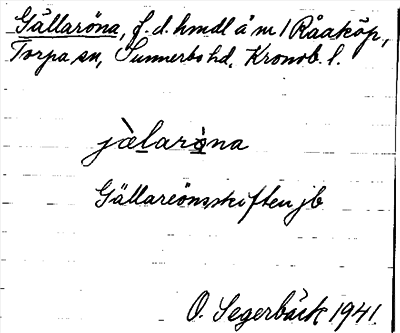 Gällaröna, f. d. hmdl å m 1 Råaköp,
Torpa sn, Sunnerbo hd, Kronob. l.
jàlaròna
Gällareönsskiften jb
O. Segerbäck 1941.